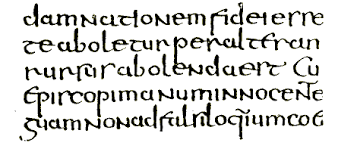 damnationem fidei esse
te aboletur per alteran
rursus abolenda est Cū
episcopi manum innocentē
guam non ad falsiloqium coe